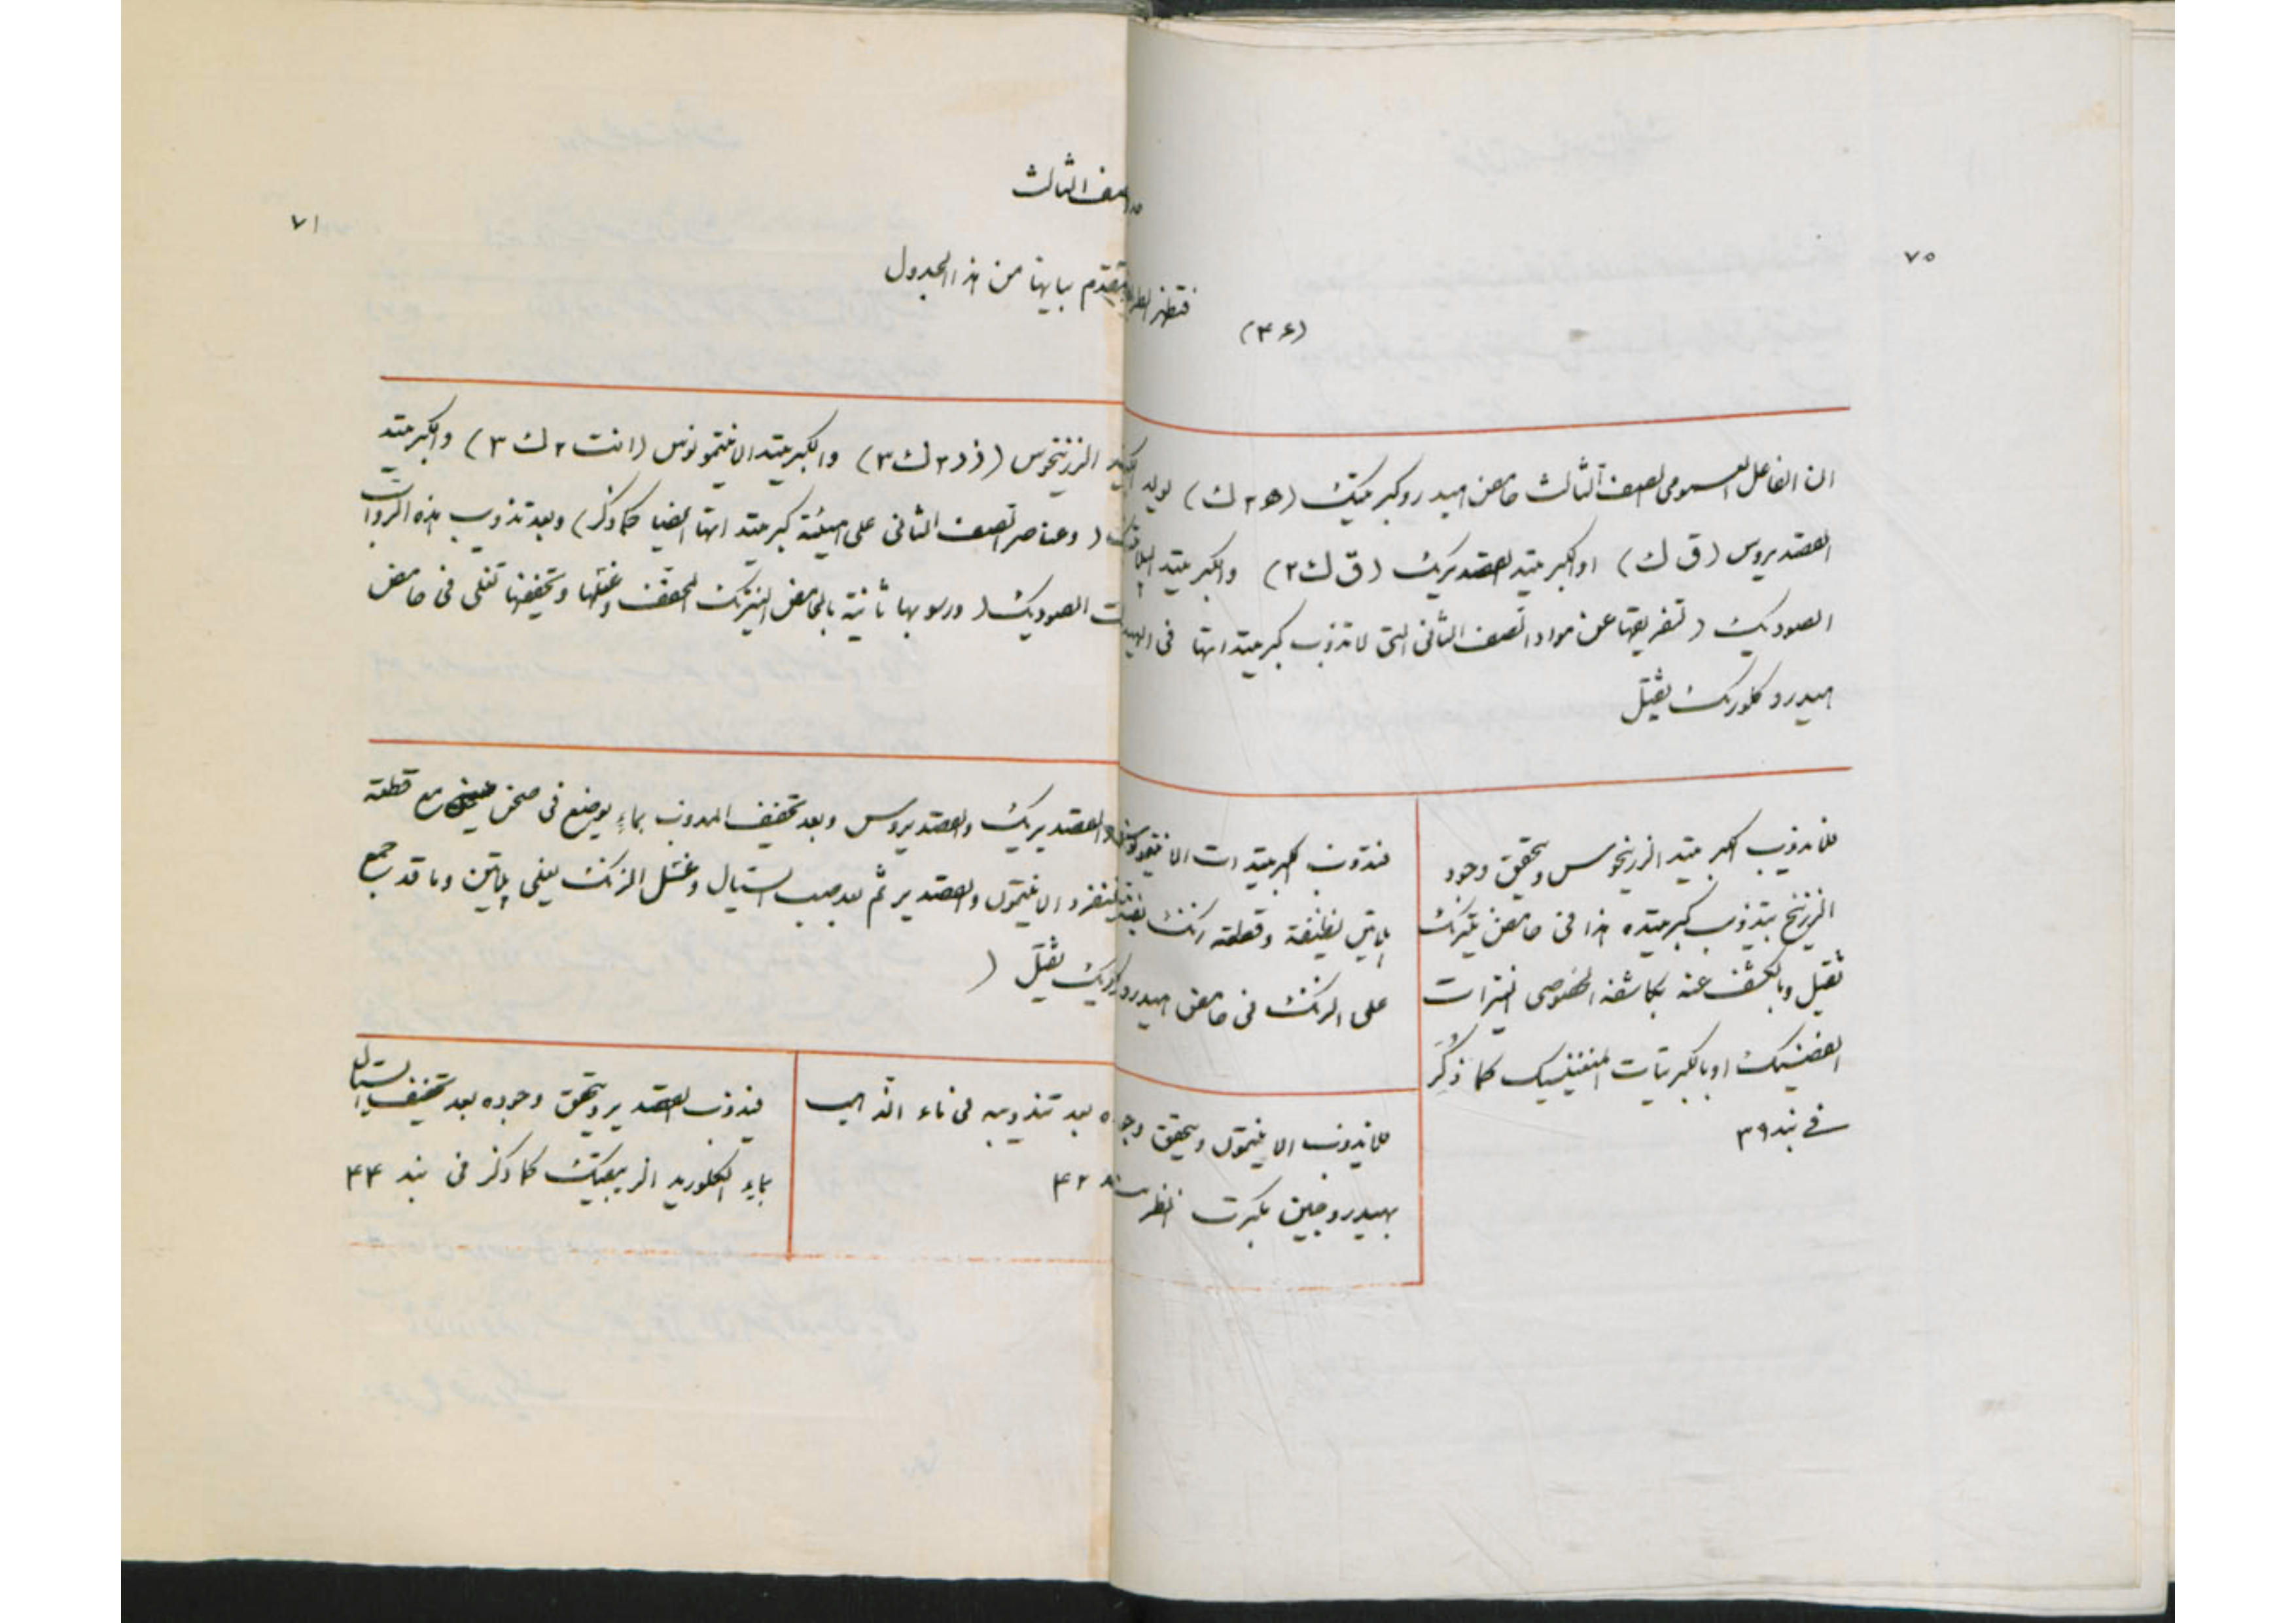 الصف الثالث
٧٠
٧١
(٤٦) فتظهر تقدم بيانها من هذا الجدول
ان الفاعل العمومى للصف الثالث حامض الهيدروكبرتيك (ھ٢ ك) يولد الزرنيخوس (زر٢ ك٣) والكبرتيد الانتيمونوس (انت٢ ك٣) والكبرتيد
القصديروس (ق ك) او الكبرتيد القصديريك (ق ك٢) والكبرتيد (وعناصر الصف الثانى على هيئة كبرتيداتها ايضا كما ذكر) وبعد تذويب هذه
الصوديك (تفريقها عن مواد الصف الثانى التى لا تذوب كبرتيداتها فى الصوديك (ورسوبها ثانية بالحامض النيتريك المخفف وغسلها وتجفيفها تغلى فى حامض
هيدروكلوريك ثقيل
فلا يذوب الكبرتيد الزرنيخوس ويتحقق وجود
الزرنيخ بتذويب كبرتيده هذا فى حامض نيتريك
ثقيل وبالكشف عنه بكاشفه الخصوصى النيترات
الفضيك او بالكبريتات المغنيسيك كما ذكر
فى بند ٣٩
فتذوب كبرتيدات والقصديريك والقصديروس وبعد تخفيف المذوب بماء يوضع فى صحن مع قطعة
پلاتين نظيفة وقطعة زنك الانتيمون والقصدير ثم بعد صب السيال وغسل الزنك يغلى پلاتين وما قد تجمع
على الزنك فى حامض ثقيل )
فلا يذوب الانتيمون ويتحقق وجوده بعد تذويبه فى ماء الذهب
بهيدروجين مكبرت انظر بند ٤٢
فيذوب القصدير ويتحقق وجوده بعد تخفيف السيال
بماء الكلوريد الزيبقيك كما ذكر فى بند ٤٤